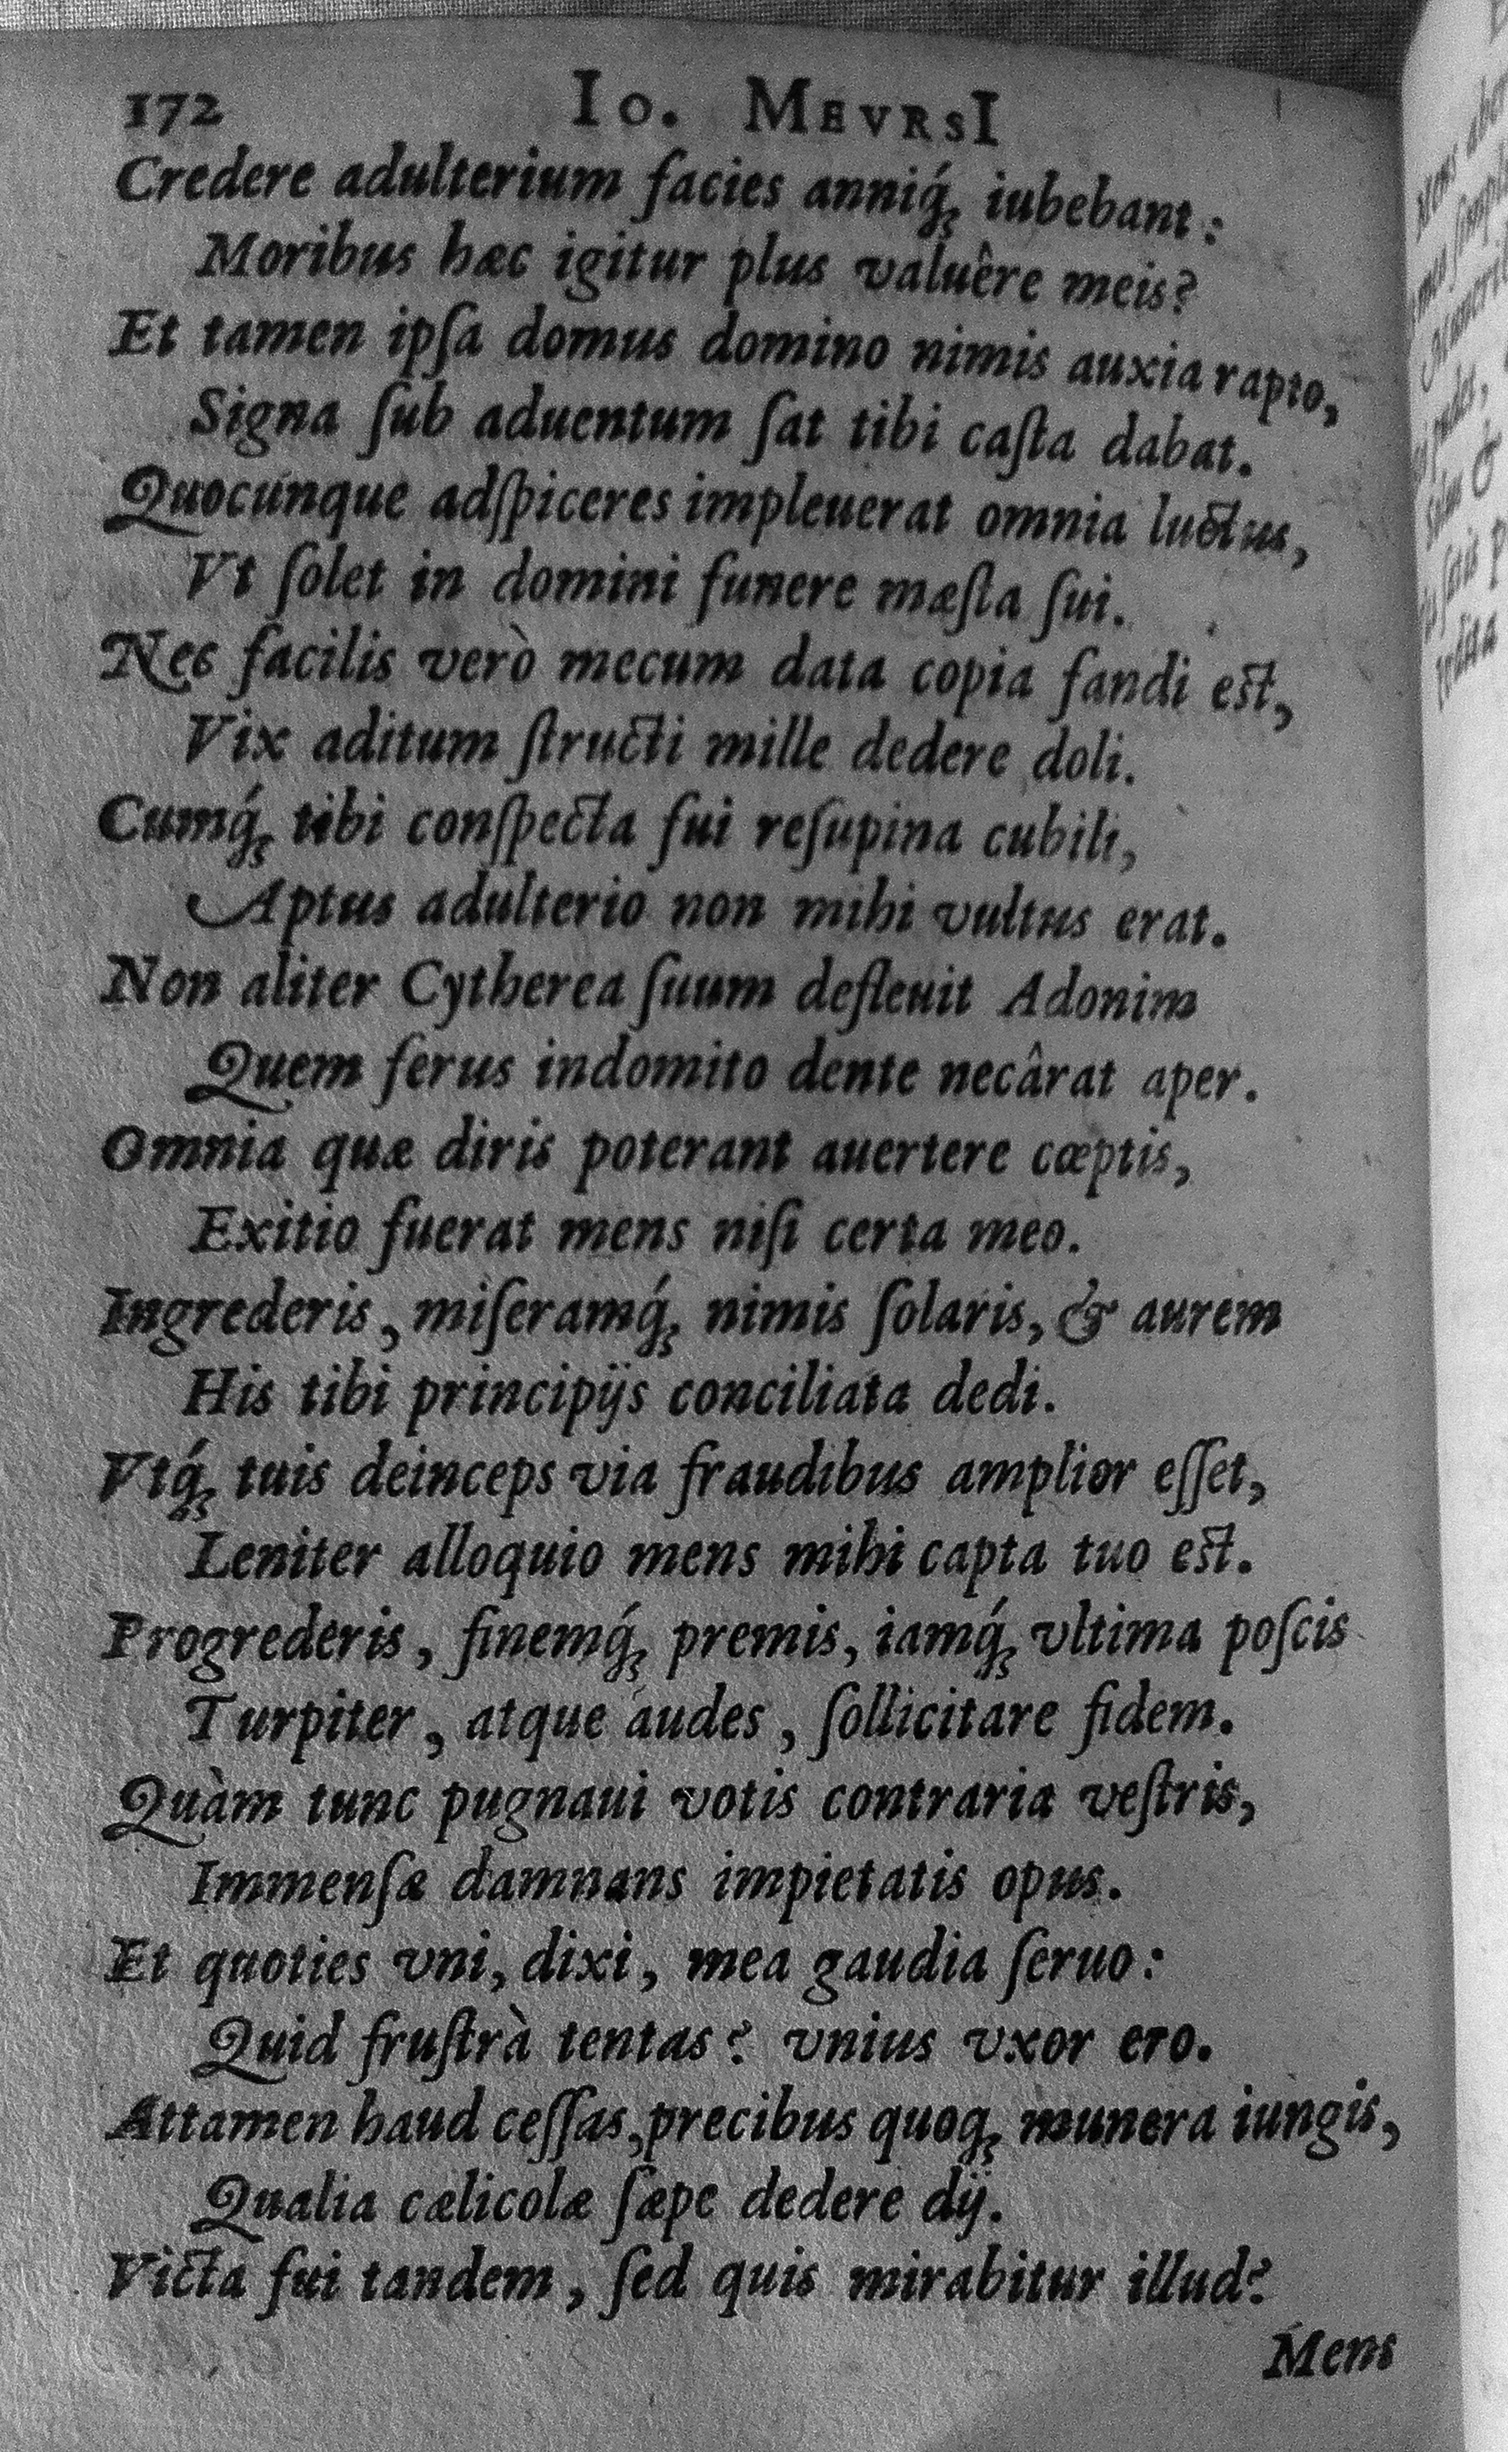 172 Io. MEVRSI
Credere adulterium facies anniq́ꝫ iubebant:
Moribus hæc igitur plus valuêre meis?
Et tamen ipſa domus domino nimis auxia rapto,
Signa ſub aduentum ſat tibi caſta dabat.
Quocunque adſpiceres impleuerat omnia luctus,
Vt ſolet in domini funere mæſta ſui.
Nec facilis verò mecum data copia fandi eſt,
Vix aditum ſtructi mille dedere doli.
Cumq́ꝫ tibi conſpecta fui reſupina cubili,
Aptus adulterio non mihi vultus erat.
Non aliter Cytherea ſuum defleuit Adonim
Quem ferus indomito dente necârat aper.
Omnia quæ diris poterant auertere cœptis,
Exitio fuerat mens niſi certa meo.
Ingrederis, miſeramq́ꝫ nimis ſolaris, & aurem
His tibi principijs conciliata dedi.
Vtq́ꝫ tuis deinceps via fraudibus amplior eſſet,
Leniter alloquio mens mihi capta tuo eſt.
Progrederis, finemq́ꝫ premis, iamq́ꝫ vltima poſcis
Turpiter, atque audes, ſollicitare fidem.
Quàm tunc pugnaui votis contraria veſtris,
Immenſæ damnans impietatis opus.
Et quoties vni, dixi, mea gaudia ſeruo:
Quid fruſtrà tentas? vnius vxor ero.
Attamen haud ceſſas, precibus quoqꝫ munera iungis,
Qualia cælicolæ ſæpe dedere dij.
Victa fui tandem, ſed quis mirabitur illud?
Mens